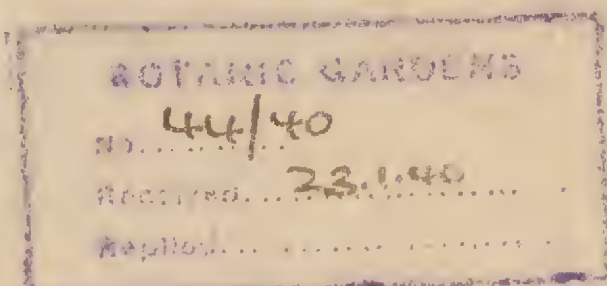 BOTANIC GARDENS
No............ 44/40
Received............ 23.1.40
Replied............